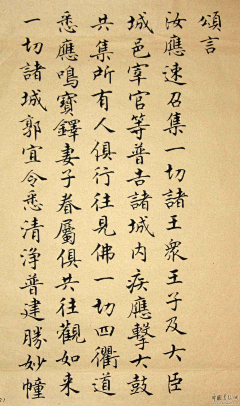 頌言
汝應速召集一切諸王眾王子及大臣
城邑宰官等普告諸城內疾應擊大鼓
共集所有人俱行往見佛一切四衢道
悉應鳴寶鐸妻子眷屬俱共往觀如来
一切諸城郭宜令悉清淨普建勝妙幢